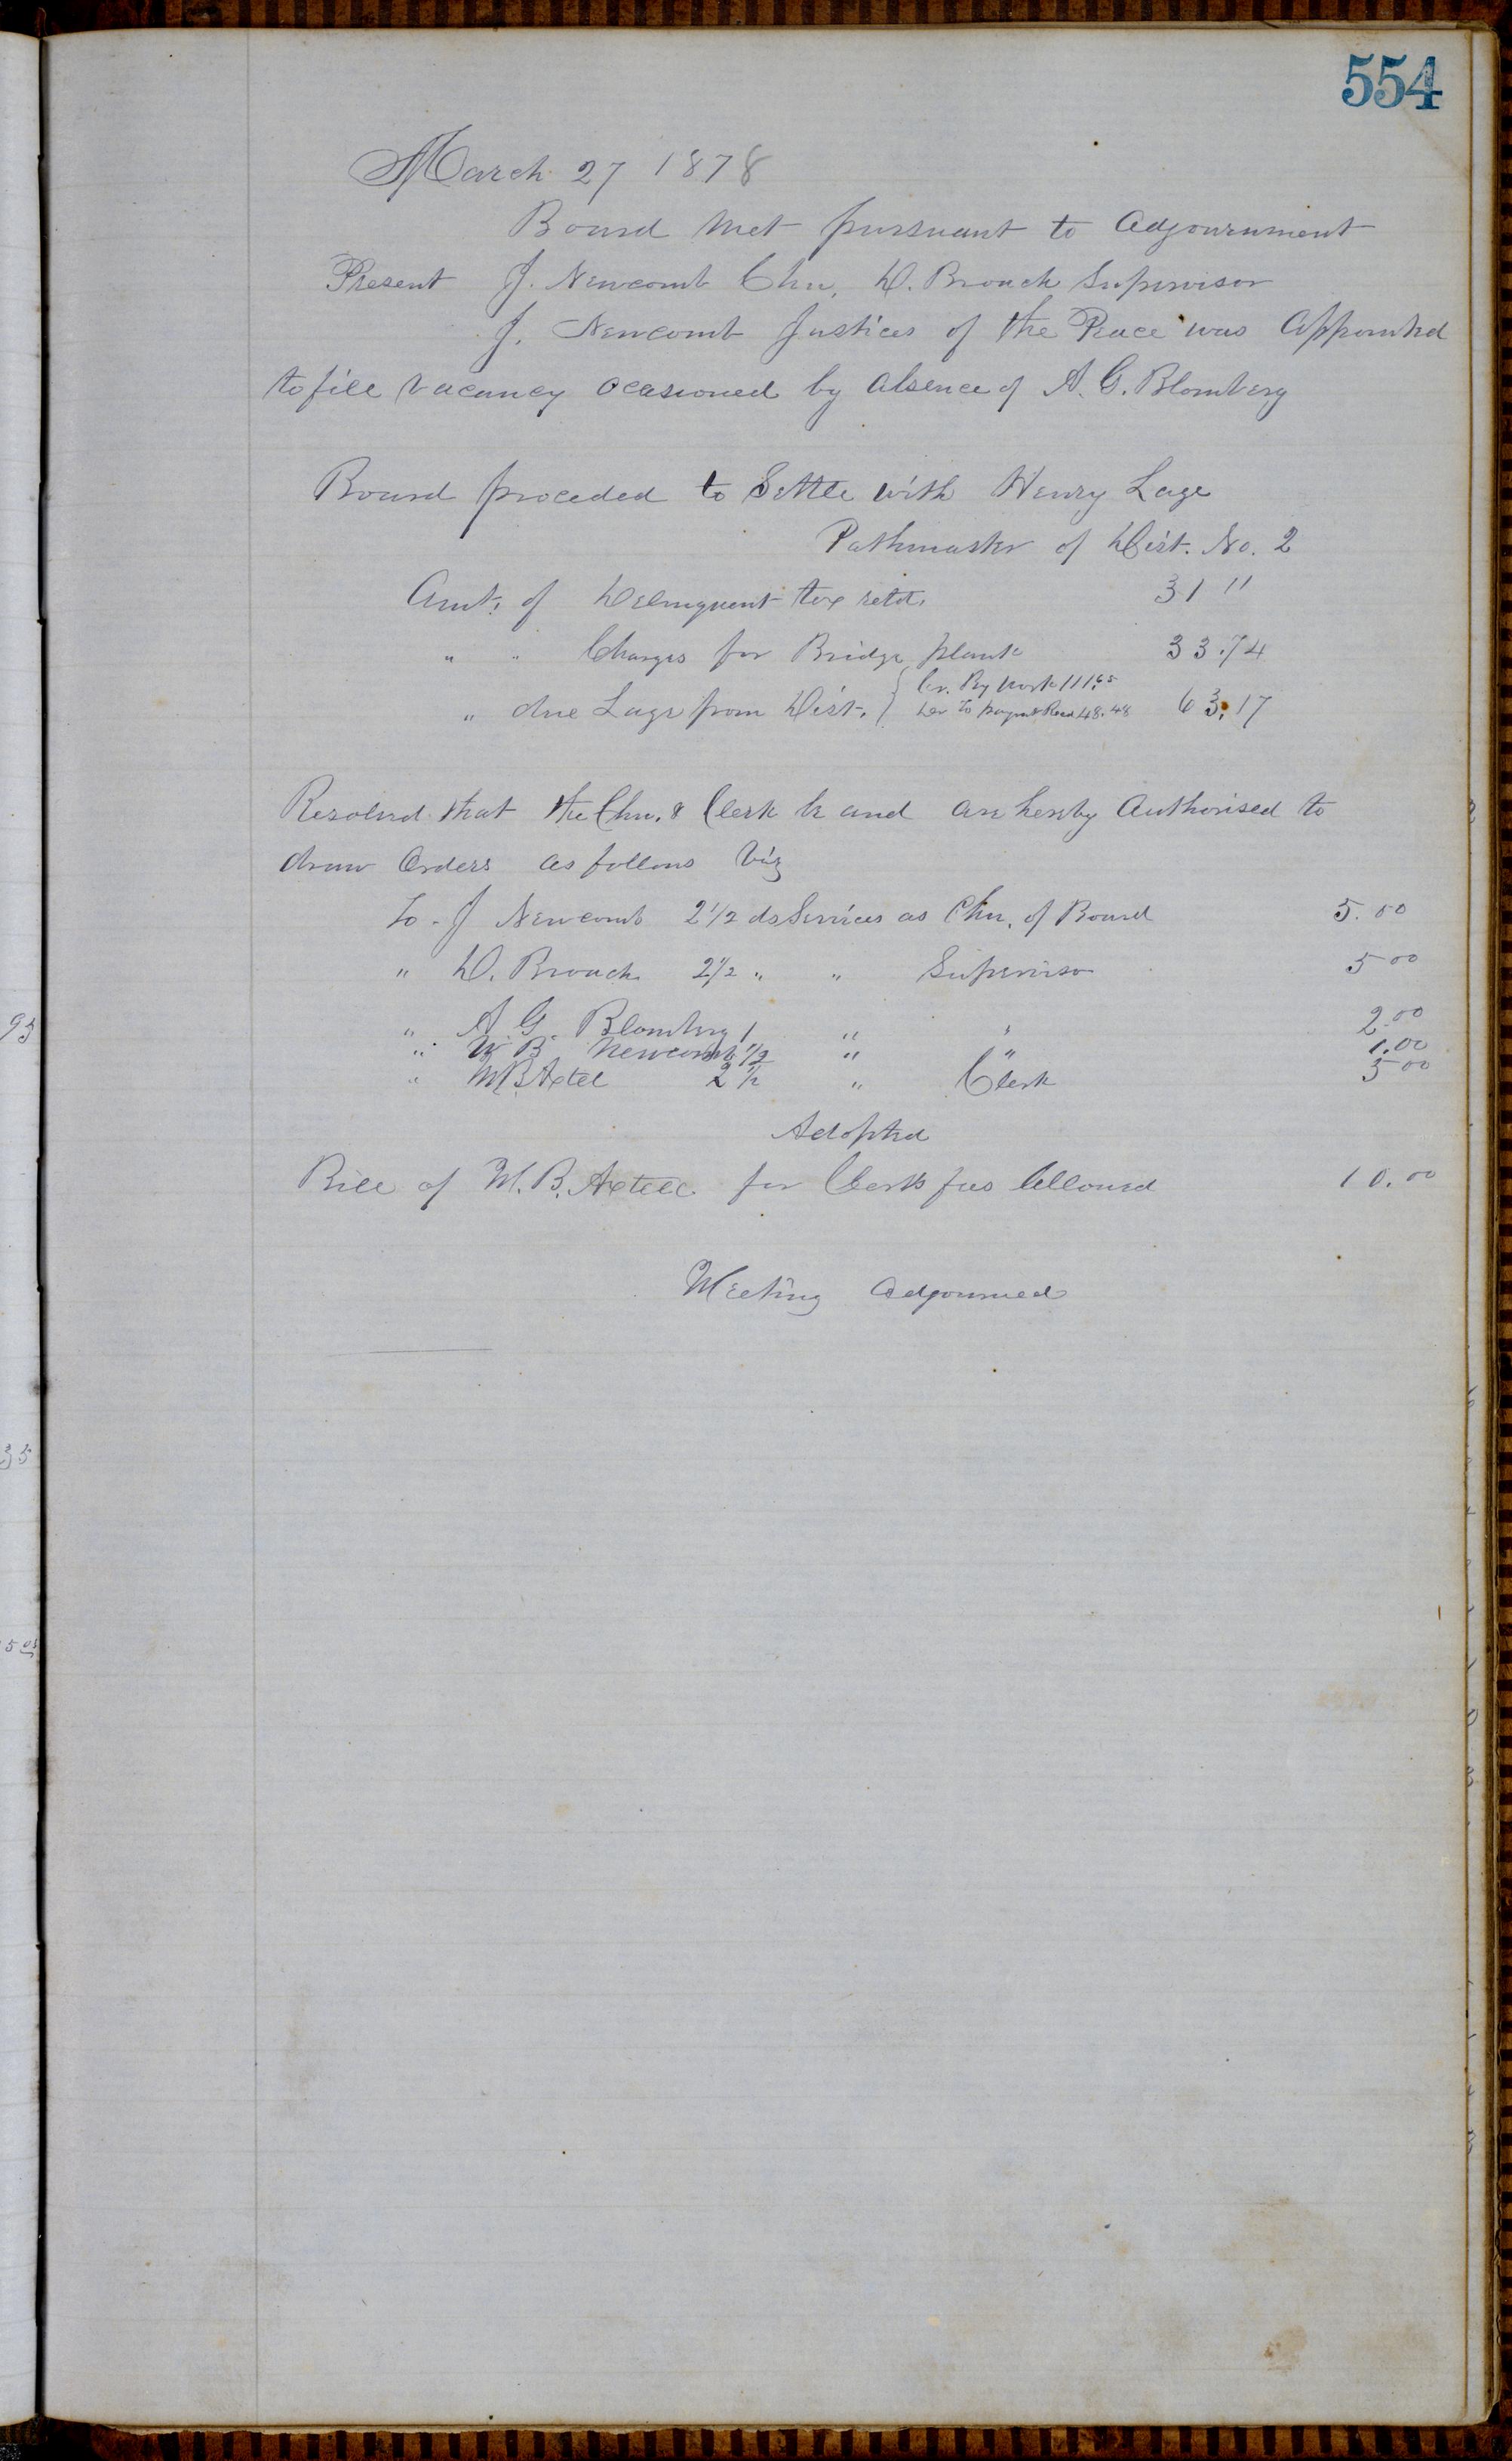 554
March 27 1878
Board met pursuant to adjournment
Present J. Newcomb Chn. D. Broach Supervisor
J. Newcomb Justices of the Peace was Appointed
to fill vacancy ocasioned by absence of A. G. Blomberg
Board proceded to Settle with Henry Lage
Pathmaster of Dist. No. 2
Amt. of Delinquent tax retd. 31 "
" " Charges for Bridge plank 33.74
" due Lage from Dist. { Cr. By work 111.65
Der to payment Road 48.48 63.17
Resolved that the Chn. & Clerk be and are hereby Authorised to
draw Orders as follows viz
To - J Newcomb 2 1/2 ds Services as Chn. of Board 5.00
" D. Broach 2 1/2 " " Supervisor 5 00
" A. G. Blomberg 1 " " 2.00
" W B Newcomb 1/2 " " 1.00
" M B Axtel 2 1/2 " Clerk 5 00
Adopted
Bill of M. B. Axtell for Clerks fees Allowed 10.00
Meeting adjourned
93
35
5 05